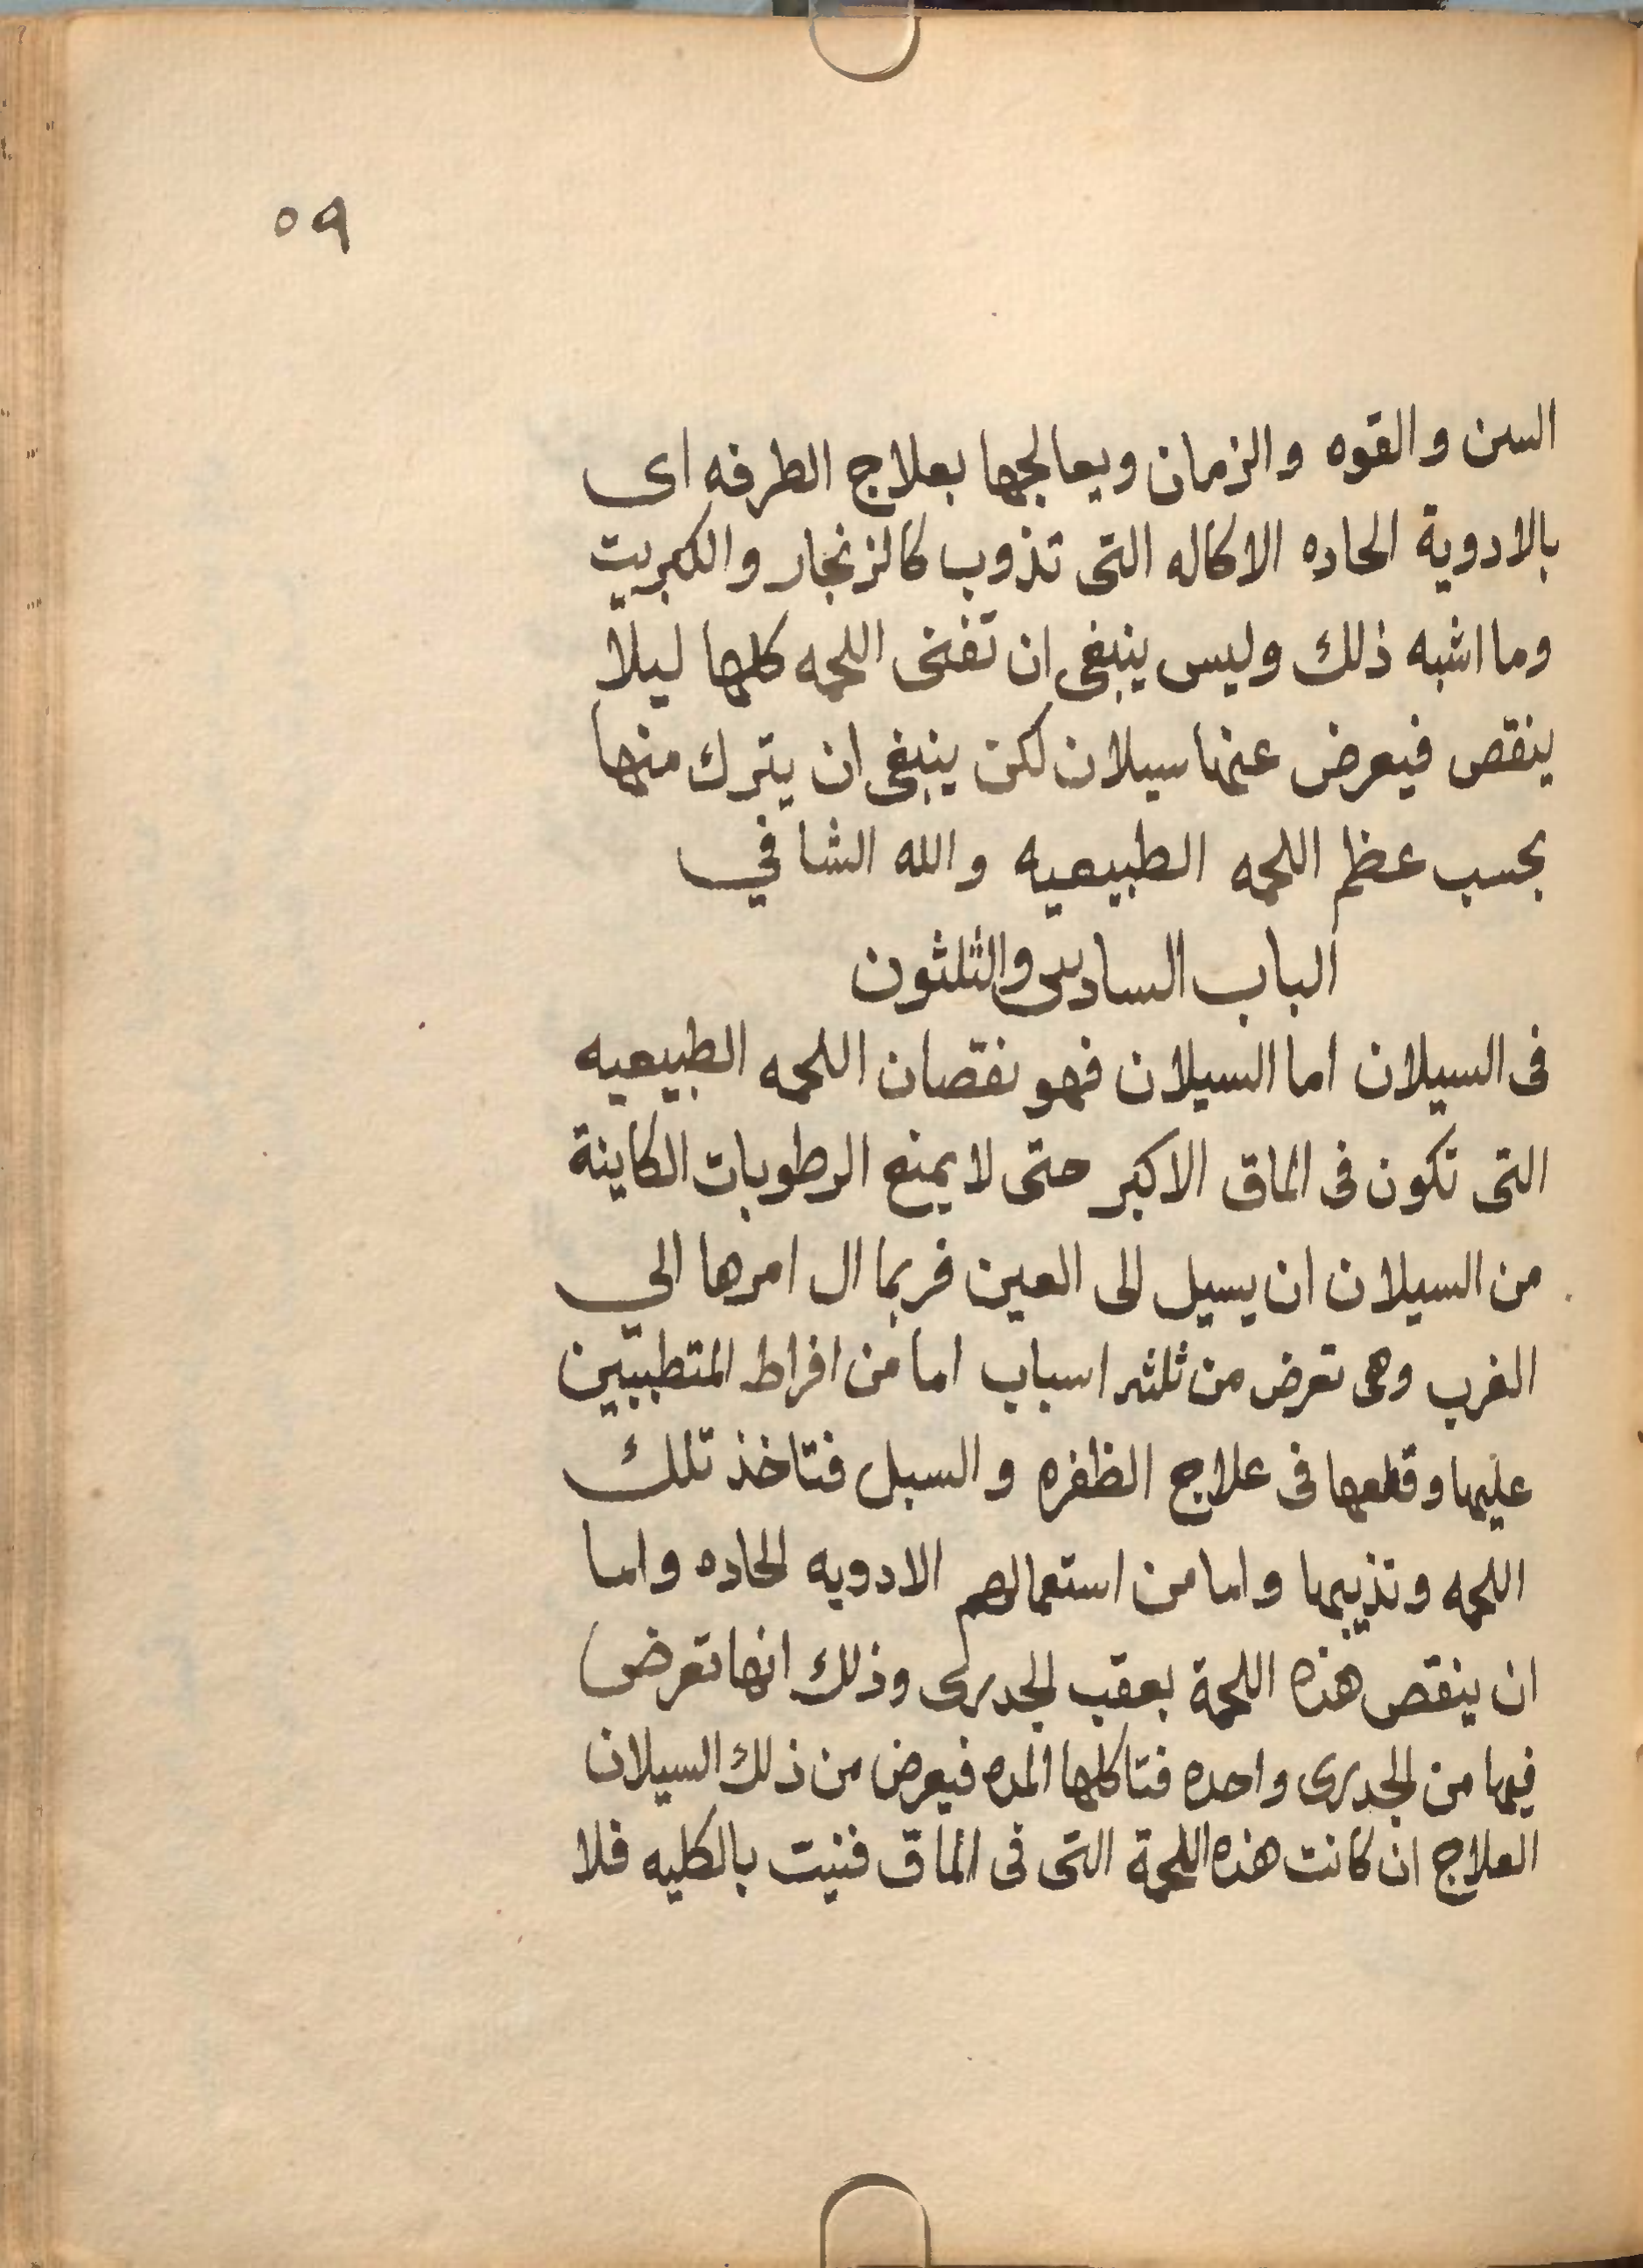 ٥٩
السن والقوه والزمان ويعالجها بعلاج الطرفه اى
بالادوية الحاده الاكاله التى تذوب كالزنجار والكبريت
وما اشبه ذلك وليس ينبغى ان تفنى اللحمه كلها ليلا
ينقص فيعرض عنها سيلان لكن ينبغى ان يترك منها
بحسب عظم اللحمه الطبيعيه والله الشافي
الباب السادس والثلثون
فى السيلان اما السيلان فهو نقصان اللحمه الطبيعيه
التى تكون فى الماق الاكبر حتى لا يمنع الرطوبات الكاينة
من السيلان ان يسيل الى العين فربما ال امرها الي
الغرب وهى تعرض من ثلثه اسباب اما من افراط المتطببين
عليها وقطعها فى علاج الظفره والسبل فتاخذ تلك
اللحمه وتذيبها واما من استعمالهم الادويه الحاده واما
ان ينقص هذه اللحمة بعقب الجدرى وذلك انها تعرض
فيها من الجدرى واحده فتاكلها المده فيعرض من ذلك السيلان
العلاج ان كانت هذه اللحمة التى فى الماق فنيت بالكليه فلا